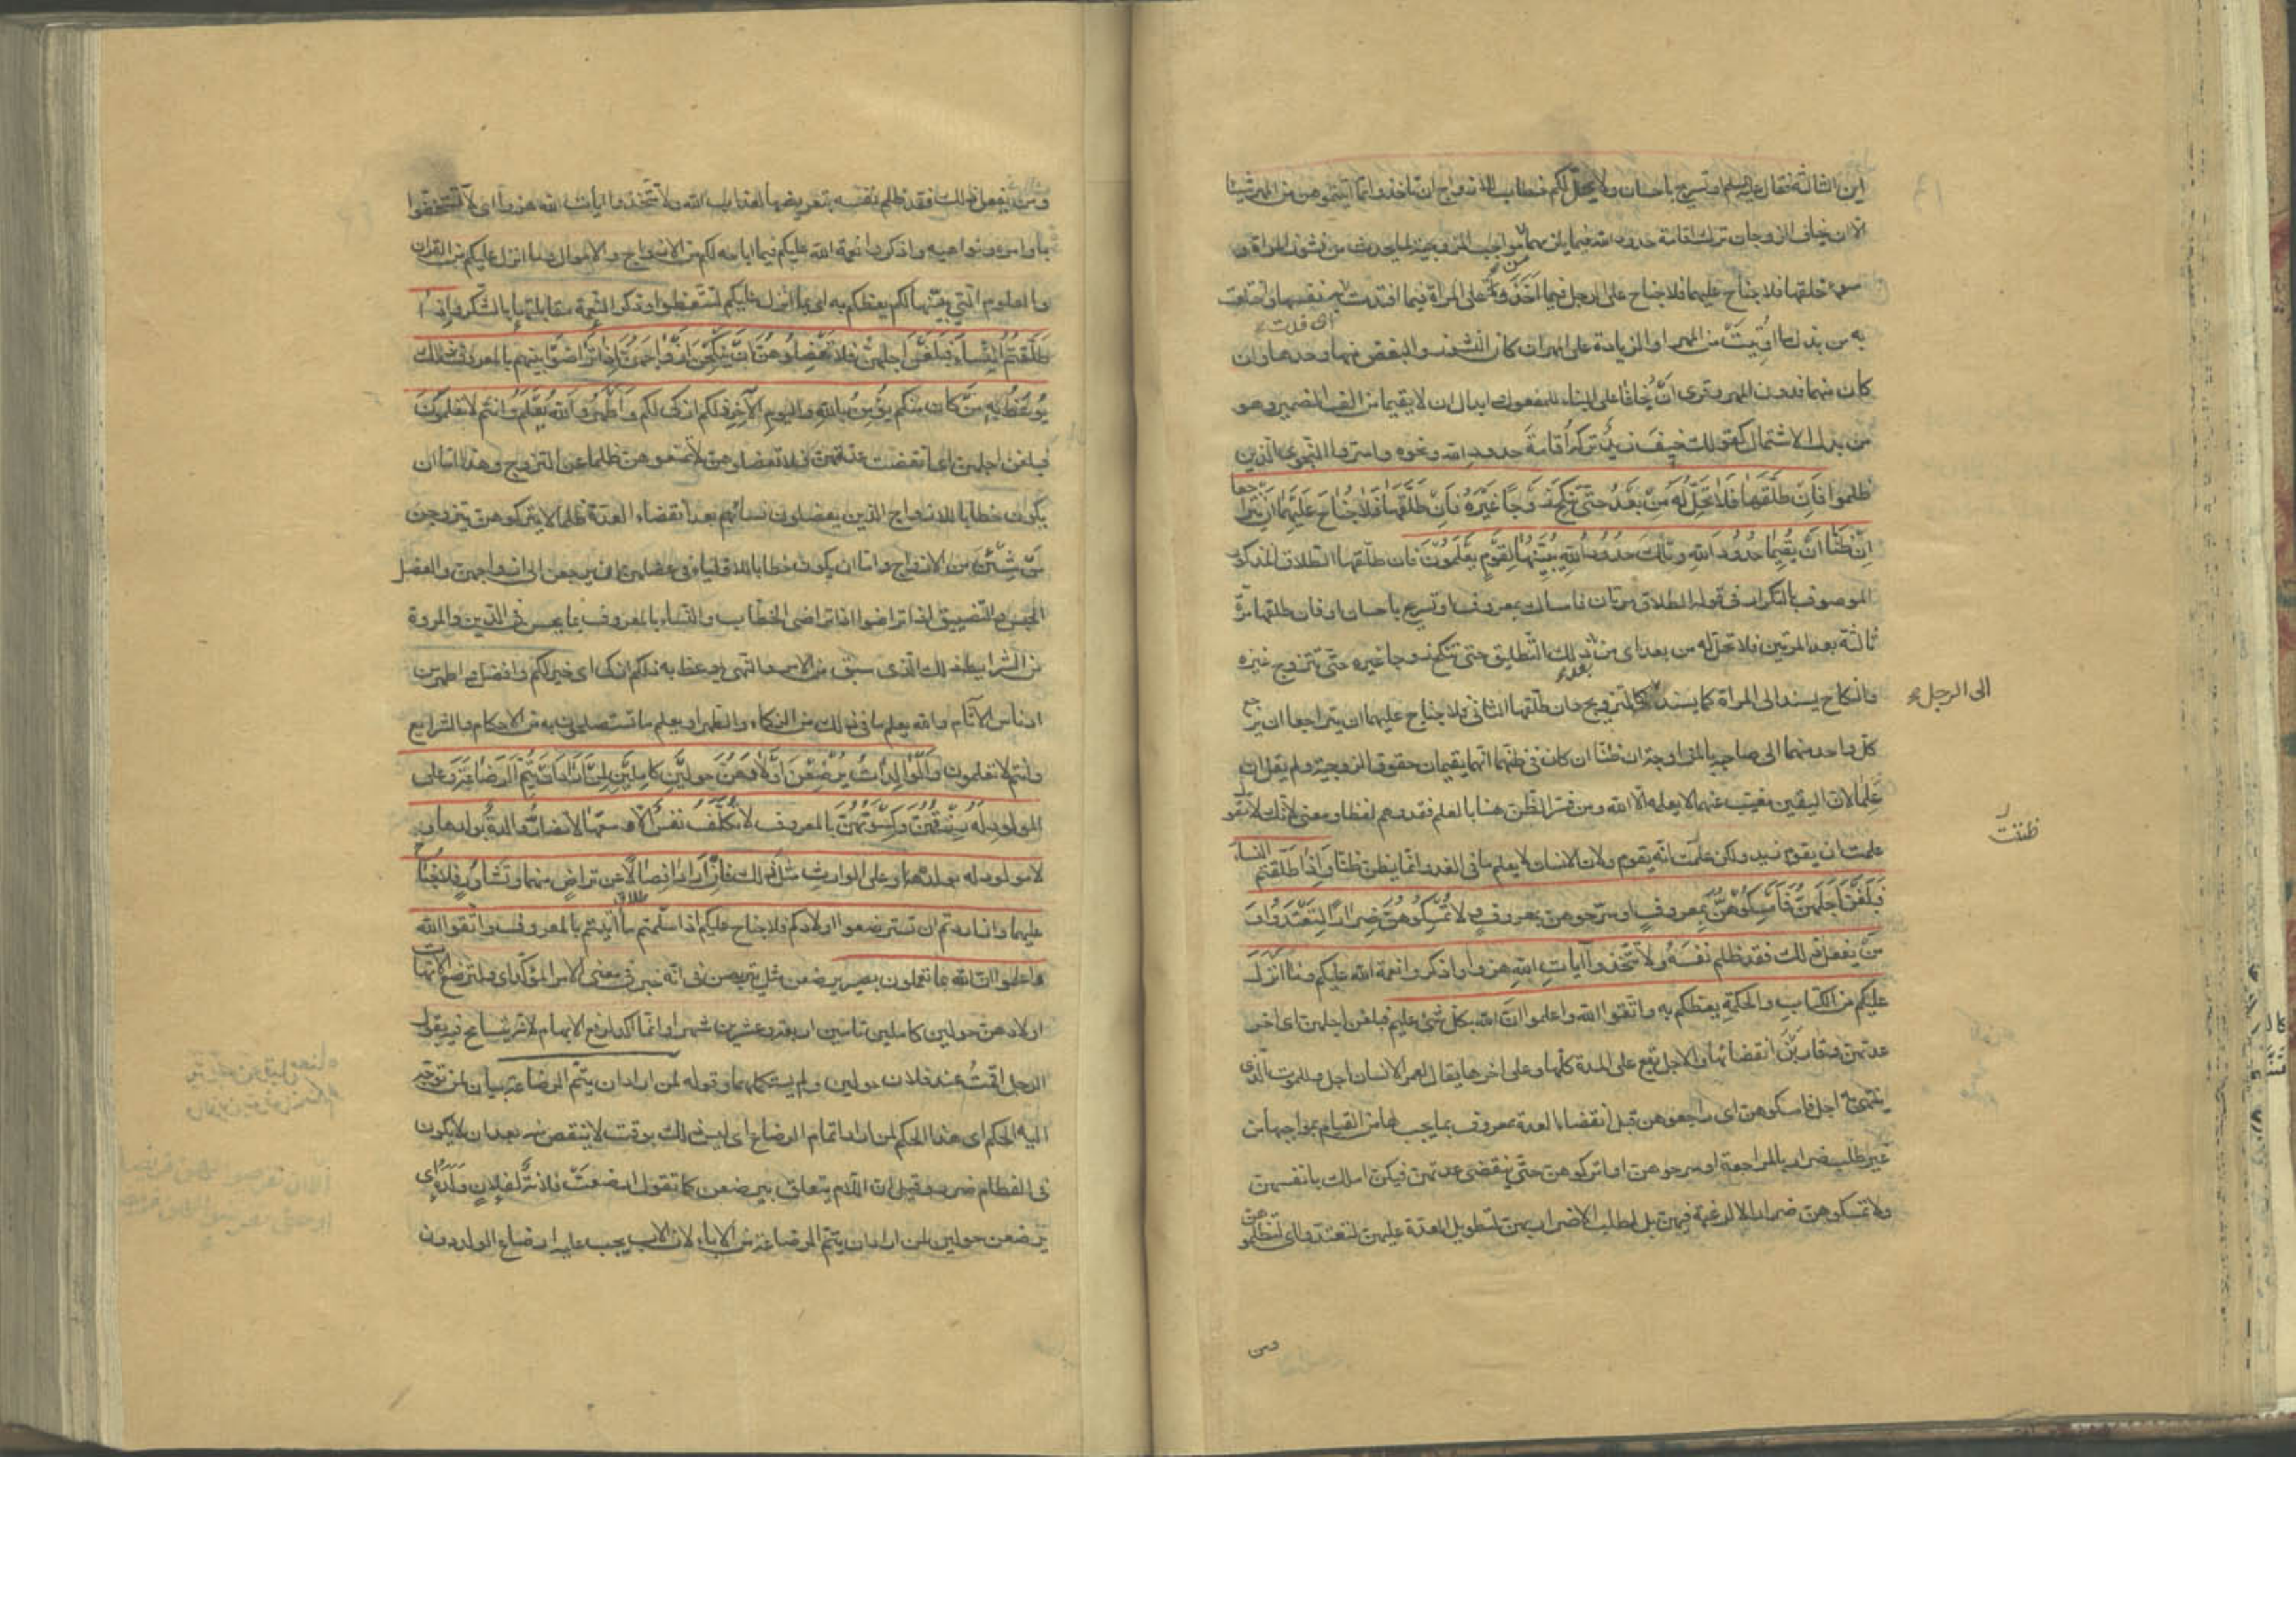 اين الثالثة فقال عليه السلم او تسريح باحسان ولا يحل لكم خطاب للازواج ان تاخذوا مما آتيتموهن من المهر شيئا
الا ان يخاف الزوجان ترك اقامة حدود الله فيما يلزمهما من مواجب الزوجية لما يحدث من نشوز المراة و
سوء خلقها فلا جناح عليهما فلا جناح على الرجل فيما اخذ ولا على المراة فيما افتدت به نفسها واختلعت
به من بذل ما اوتيت من المهر او الزيادة على المهر ان كان النشوز والبغض منها وحدها وان
كان منهما فدون المهر وقرى ان يخافا على البناء للمفعول وابدال ان لا يقيما من الف الضمير وهو
من بدل الاشتمال كقولك خيف زيد تركه اقامة حدود الله ونحوه واسروا النجوى الذين
ظلموا فان طلقها فلا تحل له من بعد حتى تنكح زوجا غيره فان طلقها فلا جناح عليهما ان يتراجعا
ان ظنا ان يقيما حدود الله وتلك حدود الله يبينها لقوم يعلمون فان طلقها الطلاق المذكور
الموصوف بالتكرار في قوله الطلاق مرتان فامساك بمعروف او تسريح باحسان او فان طلقها مرة
ثالثة بعد المرتين فلا تحل له من بعد اى من بعد ذلك التطليق حتى تنكح زوجا غيره حتى تتزوج غيره
والنكاح يسند الى المراة كما يسند الى الرجل كالتزويج فان طلقها الثانى فلا جناح عليهما ان يتراجعا ان يرجع
كل واحد منهما الى صاحبه بالمزاوجة ان ظنا ان كان في ظنهما انهما يقيمان حقوق الزوجية ولم يقل ان
علما لان اليقين مغيب عنهما لا يعلمه الا الله ومن فسر الظن هنا بالعلم فقد وهم لفظا ومعنى لانك لا تقول
علمت ان يقوم زيد ولكن علمت انه يقوم ولان الانسان لا يعلم ما في الغد وانما يظن ظنا واذا طلقتم النساء
ظننت
فبلغن اجلهن فامسكوهن بمعروف او سرحوهن بمعروف ولا تمسكوهن ضرارا لتعتدوا و
من يفعل ذلك فقد ظلم نفسه ولا تتخذوا آيات الله هزوا واذكروا نعمة الله عليكم وما انزل
عليكم من الكتاب والحكمة يعظكم به واتقوا الله واعلموا ان الله بكل شئ عليم فبلغن اجلهن اى اخر
عدتهن وقاربن انقضائها والاجل يقع على المدة كلها وعلى اخرها يقال لعمر الانسان اجل وللموت الذى
ينتهى به اجل فامسكوهن اى راجعوهن قبل انقضاء العدة بمعروف بما يجب لها من القيام بمواجبها من
غير طلب ضرار بالمراجعة او سرحوهن او اتركوهن حتى ينقضى عدتهن فيكن املك بانفسهن
ولا تمسكوهن ضرارا لا لرغبة فيهن بل لطلب الاضرار بهن لتطويل العدة عليهن لتعتدوا اى لتظلموهن
ومن
ومن يفعل ذلك فقد ظلم نفسه بتعريضها لعذاب الله ولا تتخذوا ايات الله هزوا اى لا تستخفوا
باوامره ونواهيه واذكروا نعمة الله عليكم فيما اباحه لكم من الازواج والاموال وما انزل عليكم من القران
والعلوم التي بينها لكم يعظكم به اى بما انزل عليكم لتتعظوا وذكر النعمة مقابلتها بالشكر واذا
طلقتم النساء فبلغن اجلهن فلا تعضلوهن ان ينكحن ازواجهن اذا تراضوا بينهم بالمعروف ذلك
يوعظ به من كان منكم يؤمن بالله واليوم الآخر ذلكم ازكى لكم واطهر والله يعلم وانتم لا تعلمون
فبلغن اجلهن اى انقضت عدتهن فلا تعضلوهن لا تمنعوهن ظلما عن التزوج وهذا اما ان
يكون خطابا للازواج الذين يعضلون نسائهم بعد انقضاء العدة ظلما لا يتركوهن يتزوجن
من شئن من الازواج واما ان يكون خطابا للاولياء في عضلهن ان يرجعن الى ازواجهن والعضل
الحبس والتضييق اذا تراضوا اذا تراضى الخطاب والنساء بالمعروف بما يحسن في الدين والمروة
من الشرايط ذلك الذى سبق من الامر والنهى يوعظ به ذلكم ازكى اى خير لكم وافضل واطهر من
ادناس الآثام والله يعلم ما في ذلك من الزكاء والطهر او يعلم ما تستصلحون به من الاحكام والشرايع
وانتم لا تعلمون والوالدات يرضعن اولادهن حولين كاملين لمن اراد ان يتم الرضاعة وعلى
المولود له رزقهن وكسوتهن بالمعروف لا تكلف نفس الا وسعها لا تضار والدة بولدها و
لا مولود له بولده وعلى الوارث مثل ذلك فان ارادا فصالا عن تراض منهما وتشاور فلا جناح
عليهما وان اردتم ان تسترضعوا اولادكم فلا جناح عليكم اذا سلمتم ما آتيتم بالمعروف واتقوا الله
واعلموا ان الله بما تعملون بصير يرضعن مثل يتربصن في انه خبر في معنى الامر المؤكد اى ولترضع الامهات
اولادهن حولين كاملين تامين اربعة وعشرين شهرا وانما اكد لرفع الابهام لانه يتسامح فيه يقول
الرجل اقمت عند فلان حولين ولم يستكملهما وقوله لمن اراد ان يتم الرضاعة بيان لمن توجه
اليه الحكم اى هذا الحكم لمن اراد اتمام الرضاع اى ليس ذلك بوقت لا ينقص منه بعد ان لا يكون
في الفطام ضرر وقيل ان اللام يتعلق بيرضعن كما تقول ارضعت فلانة لفلان ولده اى
يرضعن حولين لمن اراد ان يتم الرضاعة من الاباء لان الاب يجب عليه ارضاع الولد دون